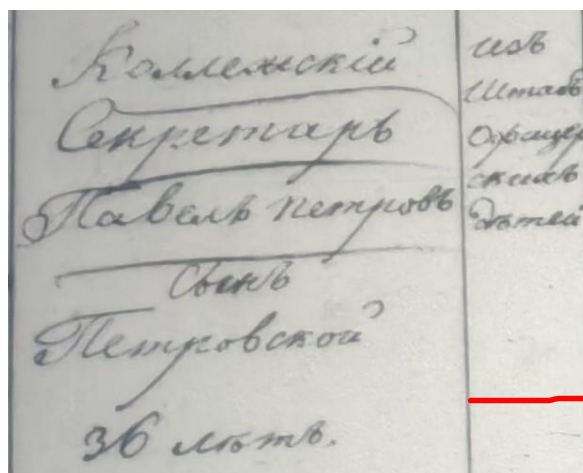 Коллежскій
Секретарь
Павелъ Петровъ
сынъ
Петровской
36 лѣтъ.
изъ
Штабъ
Офицер
скихъ
дѣтей